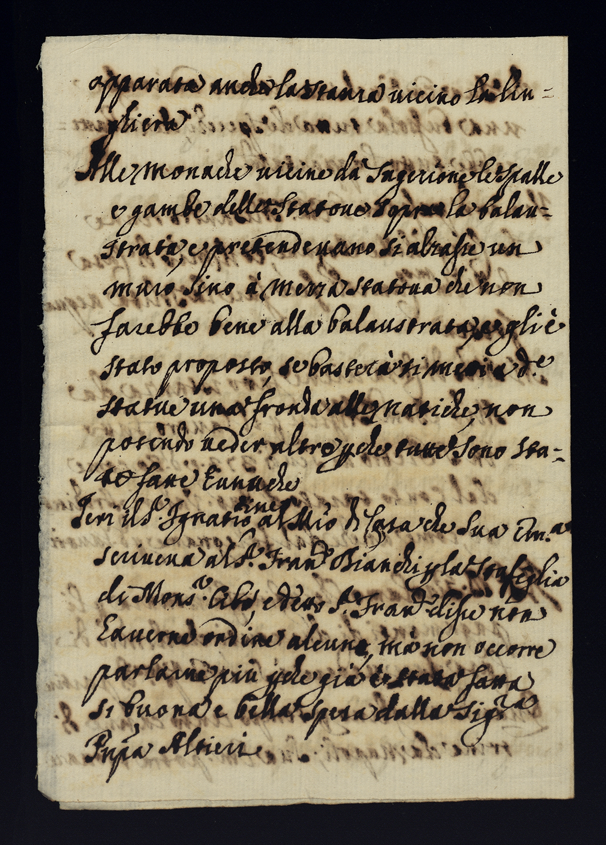 apparata anche la stanza vicino la lin=
ghiera
Alle Monache vicine dà sugezione le spalle
e gambe delle statoue sopra la balau=
strata, e pretendevano si alzasse un
muro, sino à mezza statoua che non
farebbe bene alla balaustrata, e gli è
stato proposto, se basterà si metta à d.e
statue una fronda alle natiche, non
potendo veder altro, p che tutte sono sta=
te fatte Eunuche
Ieri il S.r Ignatio al M.ro di Casa che Sua Em.a
scriveva al S. Fran.o Bianchi p la
di Mons.r Cibò, e d.to S. Fran.o disse non
haverne ordine alcuno, mà non occorre
parlarne più p che già è stata fatta
si buona e bella spesa dalla Sig.ra
Pnpa Altieri